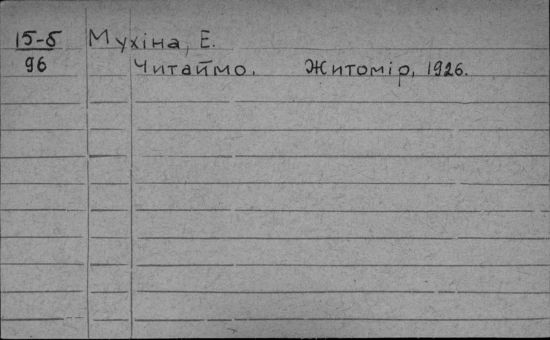 15-б Мухіна, Е.
96 Читаймо. Житомір, 1926.